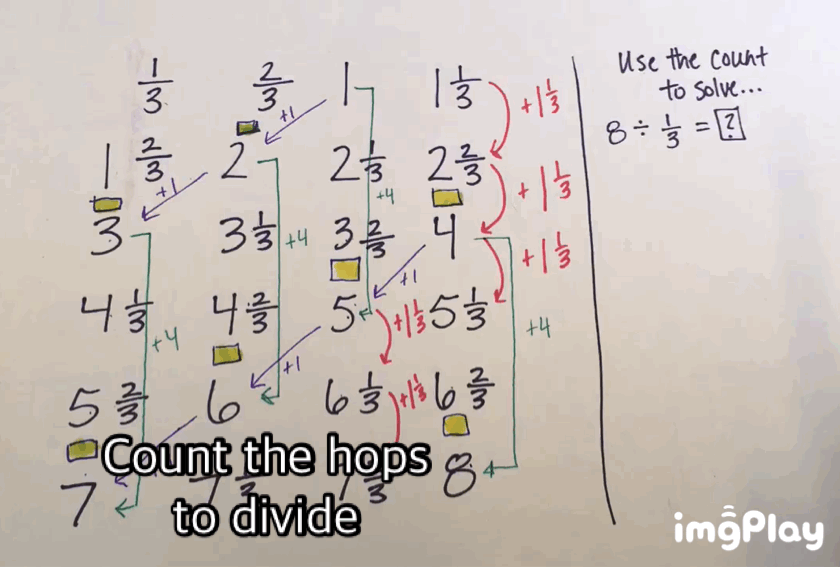 1/3 2/3 1 1 1/3 +1 1/3
+1
1 2/3 2 2 1/3 2 2/3
+1 +4 +1 1/3
3 3 1/3 3 2/3 4
+4 +1 +1 1/3
4 1/3 4 2/3 5 +1 1/3 5 1/3
+4 +1 +4
5 2/3 6 6 1/3 +1 1/3 6 2/3
7 8
Use the count
to solve...
8 ÷ 1/3 = ?
Count the hops
to divide
imgPlay